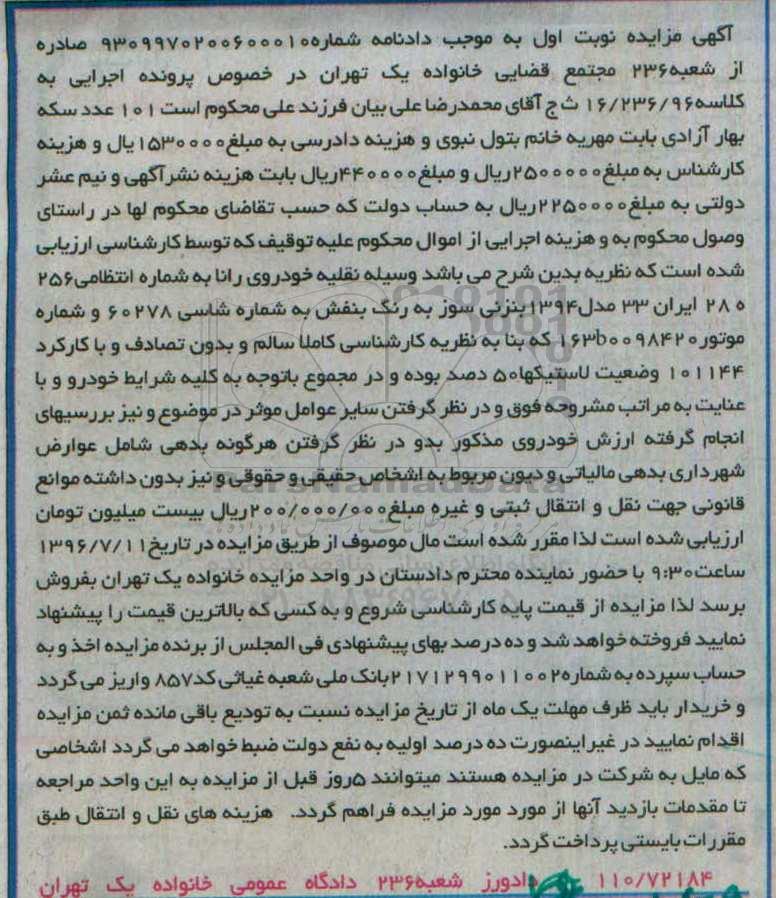 آگهی مزایده نوبت اول به موجب دادنامه شماره۹۳۰۹۹۷۰۲۰۰۶۰۰۰۱۰ صادره
از شعبه۲۳۶ مجتمع قضایی خانواده یک تهران در خصوص پرونده اجرایی به
کلاسه۱۶/۲۳۶/۹۶ ث ج آقای محمدرضا علی بیان فرزند علی محکوم است ۱۰۱ عدد سکه
بهار آزادی بابت مهریه خانم بتول نبوی و هزینه دادرسی به مبلغ۱۵۳۰۰۰۰یال و هزینه
کارشناس به مبلغ۲۵۰۰۰۰۰ریال و مبلغ۴۴۰۰۰۰ریال بابت هزینه نشرآگهی و نیم عشر
دولتی به مبلغ۲۲۵۰۰۰۰ریال به حساب دولت که حسب تقاضای محکوم لها در راستای
وصول محکوم به و هزینه اجرایی از اموال محکوم علیه توقیف که توسط کارشناسی ارزیابی
شده است که نظریه بدین شرح می باشد وسیله نقلیه خودروی رانا به شماره انتظامی۲۵۶
ه ۲۸ ایران ۳۳ مدل۱۳۹۴بنزنی سوز به رنگ بنفش به شماره شاسی ۶۰۲۷۸ و شماره
موتور۱۶۳b۰۰۹۸۴۲۰ که بنا به نظریه کارشناسی کاملا سالم و بدون تصادف و با کارکرد
۱۰۱۱۴۴ وضعیت لاستیکها۵۰ دصد بوده و در مجموع باتوجه به کلیه شرایط خودرو و با
عنایت به مراتب مشروحه فوق و در نظر گرفتن سایر عوامل موثر در موضوع و نیز بررسیهای
انجام گرفته ارزش خودروی مذکور بدو در نظر گرفتن هرگونه بدهی شامل عوارض
شهرداری بدهی مالیاتی و دیون مربوط به اشخاص حقیقی و حقوقی و نیز بدون داشته موانع
قانونی جهت نقل و انتقال ثبتی و غیره مبلغ۲۰۰/۰۰۰/۰۰۰ریال بیست میلیون تومان
ارزیابی شده است لذا مقرر شده است مال موصوف از طریق مزایده در تاریخ۱۳۹۶/۷/۱۱
ساعت۹:۳۰ با حضور نماینده محترم دادستان در واحد مزایده خانواده یک تهران بفروش
برسد لذا مزایده از قیمت پایه کارشناسی شروع و به کسی که بالاترین قیمت را پیشنهاد
نمایید فروخته خواهد شد و ده درصد بهای پیشنهادی فی المجلس از برنده مزایده اخذ و به
حساب سپرده به شماره۲۱۷۱۲۹۹۰۱۱۰۰۲بانک ملی شعبه غیاثی کد۸۵۷ واریز می گردد
و خریدار باید ظرف مهلت یک ماه از تاریخ مزایده نسبت به تودیع باقی مانده ثمن مزایده
اقدام نمایید در غیر اینصورت ده درصد اولیه به نفع دولت ضبط خواهد می گردد اشخاصی
که مایل به شرکت در مزایده هستند میتوانند ۵روز قبل از مزایده به این واحد مراجعه
تا مقدمات بازدید آنها از مورد مورد مزایده فراهم گردد. هزینه های نقل و انتقال طبق
مقررات بایستی پرداخت گردد.
۱۱۰/۷۲۱۸۴ دادورز شعبه۲۳۶ دادگاه عمومی خانواده یک تهران